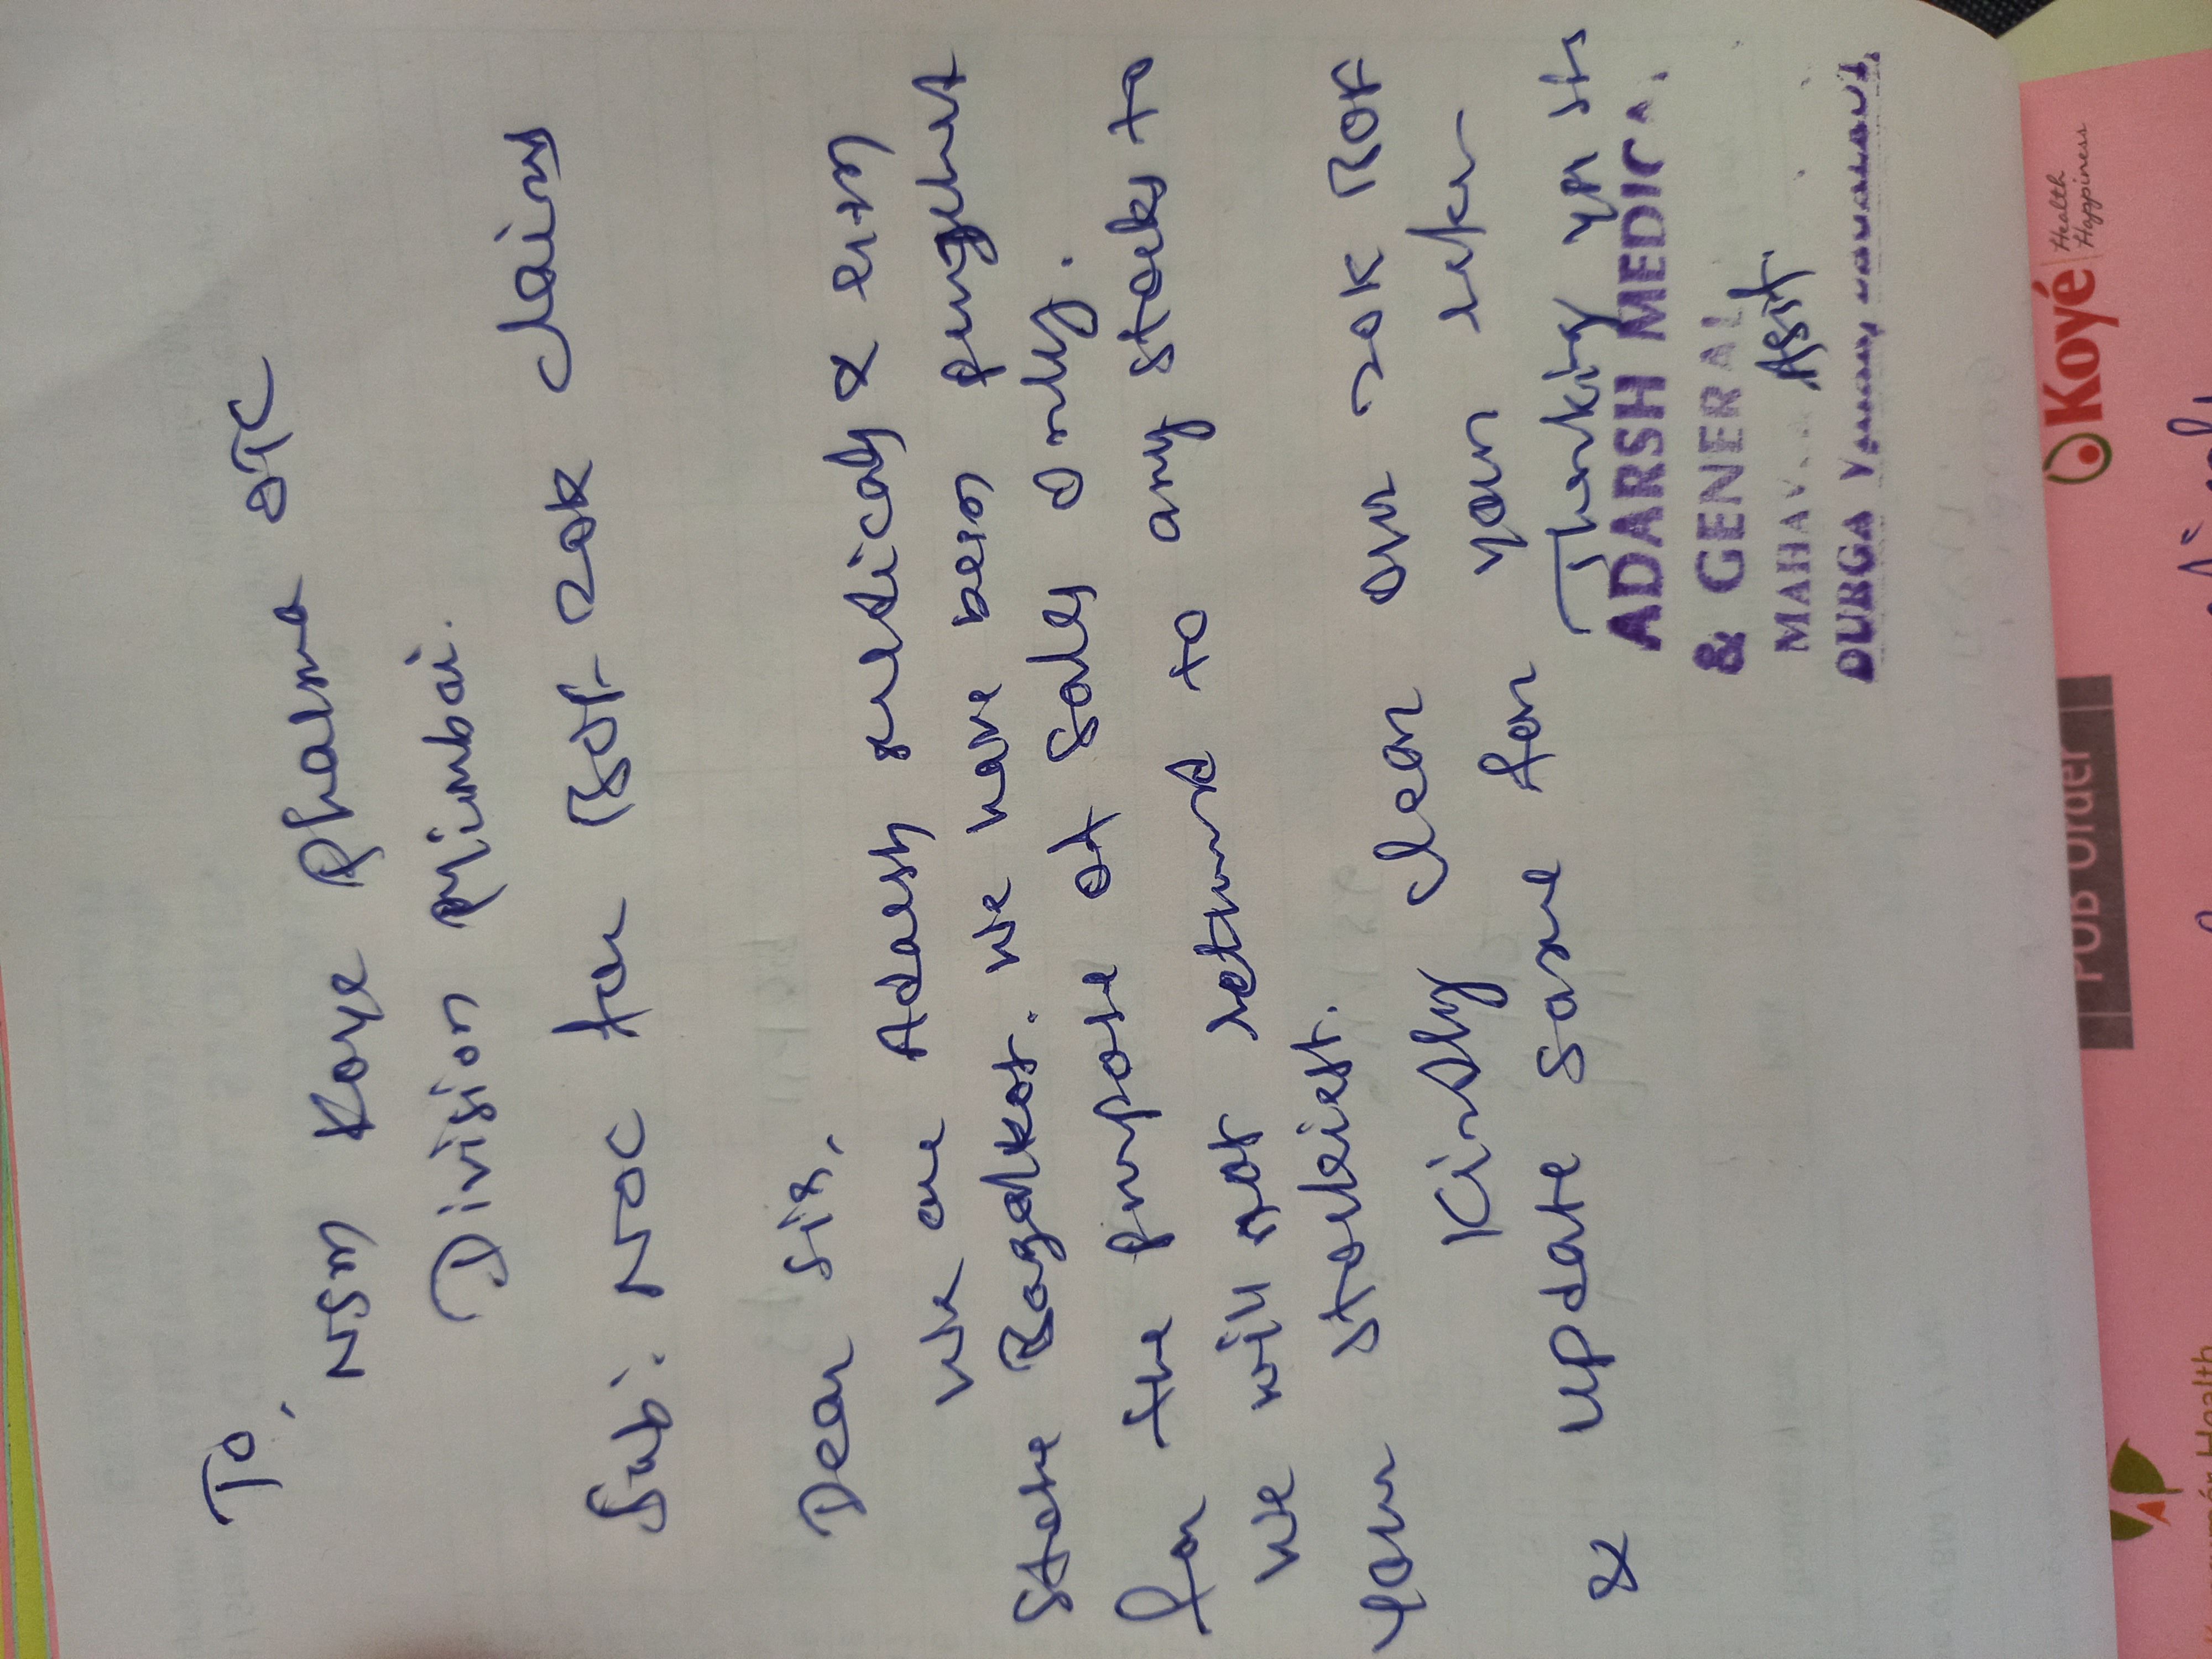 To,
NSM Koye Pharma OTC
Division Mumbai.
Sub: NOC for ROF 20K claim
Dear Sir,
We are Adarsh medicals &
Store Bagalkot. We have been
for the purpose of sales only.
We will not returns to any stocks to
your stockiest.
Kindly clear our 20K ROF
& update same for your
Thanking you sir
ADARSH MEDIC
& GENERAL
MAHAV
DURGA
Koyé Health Happiness
POB Order
Health